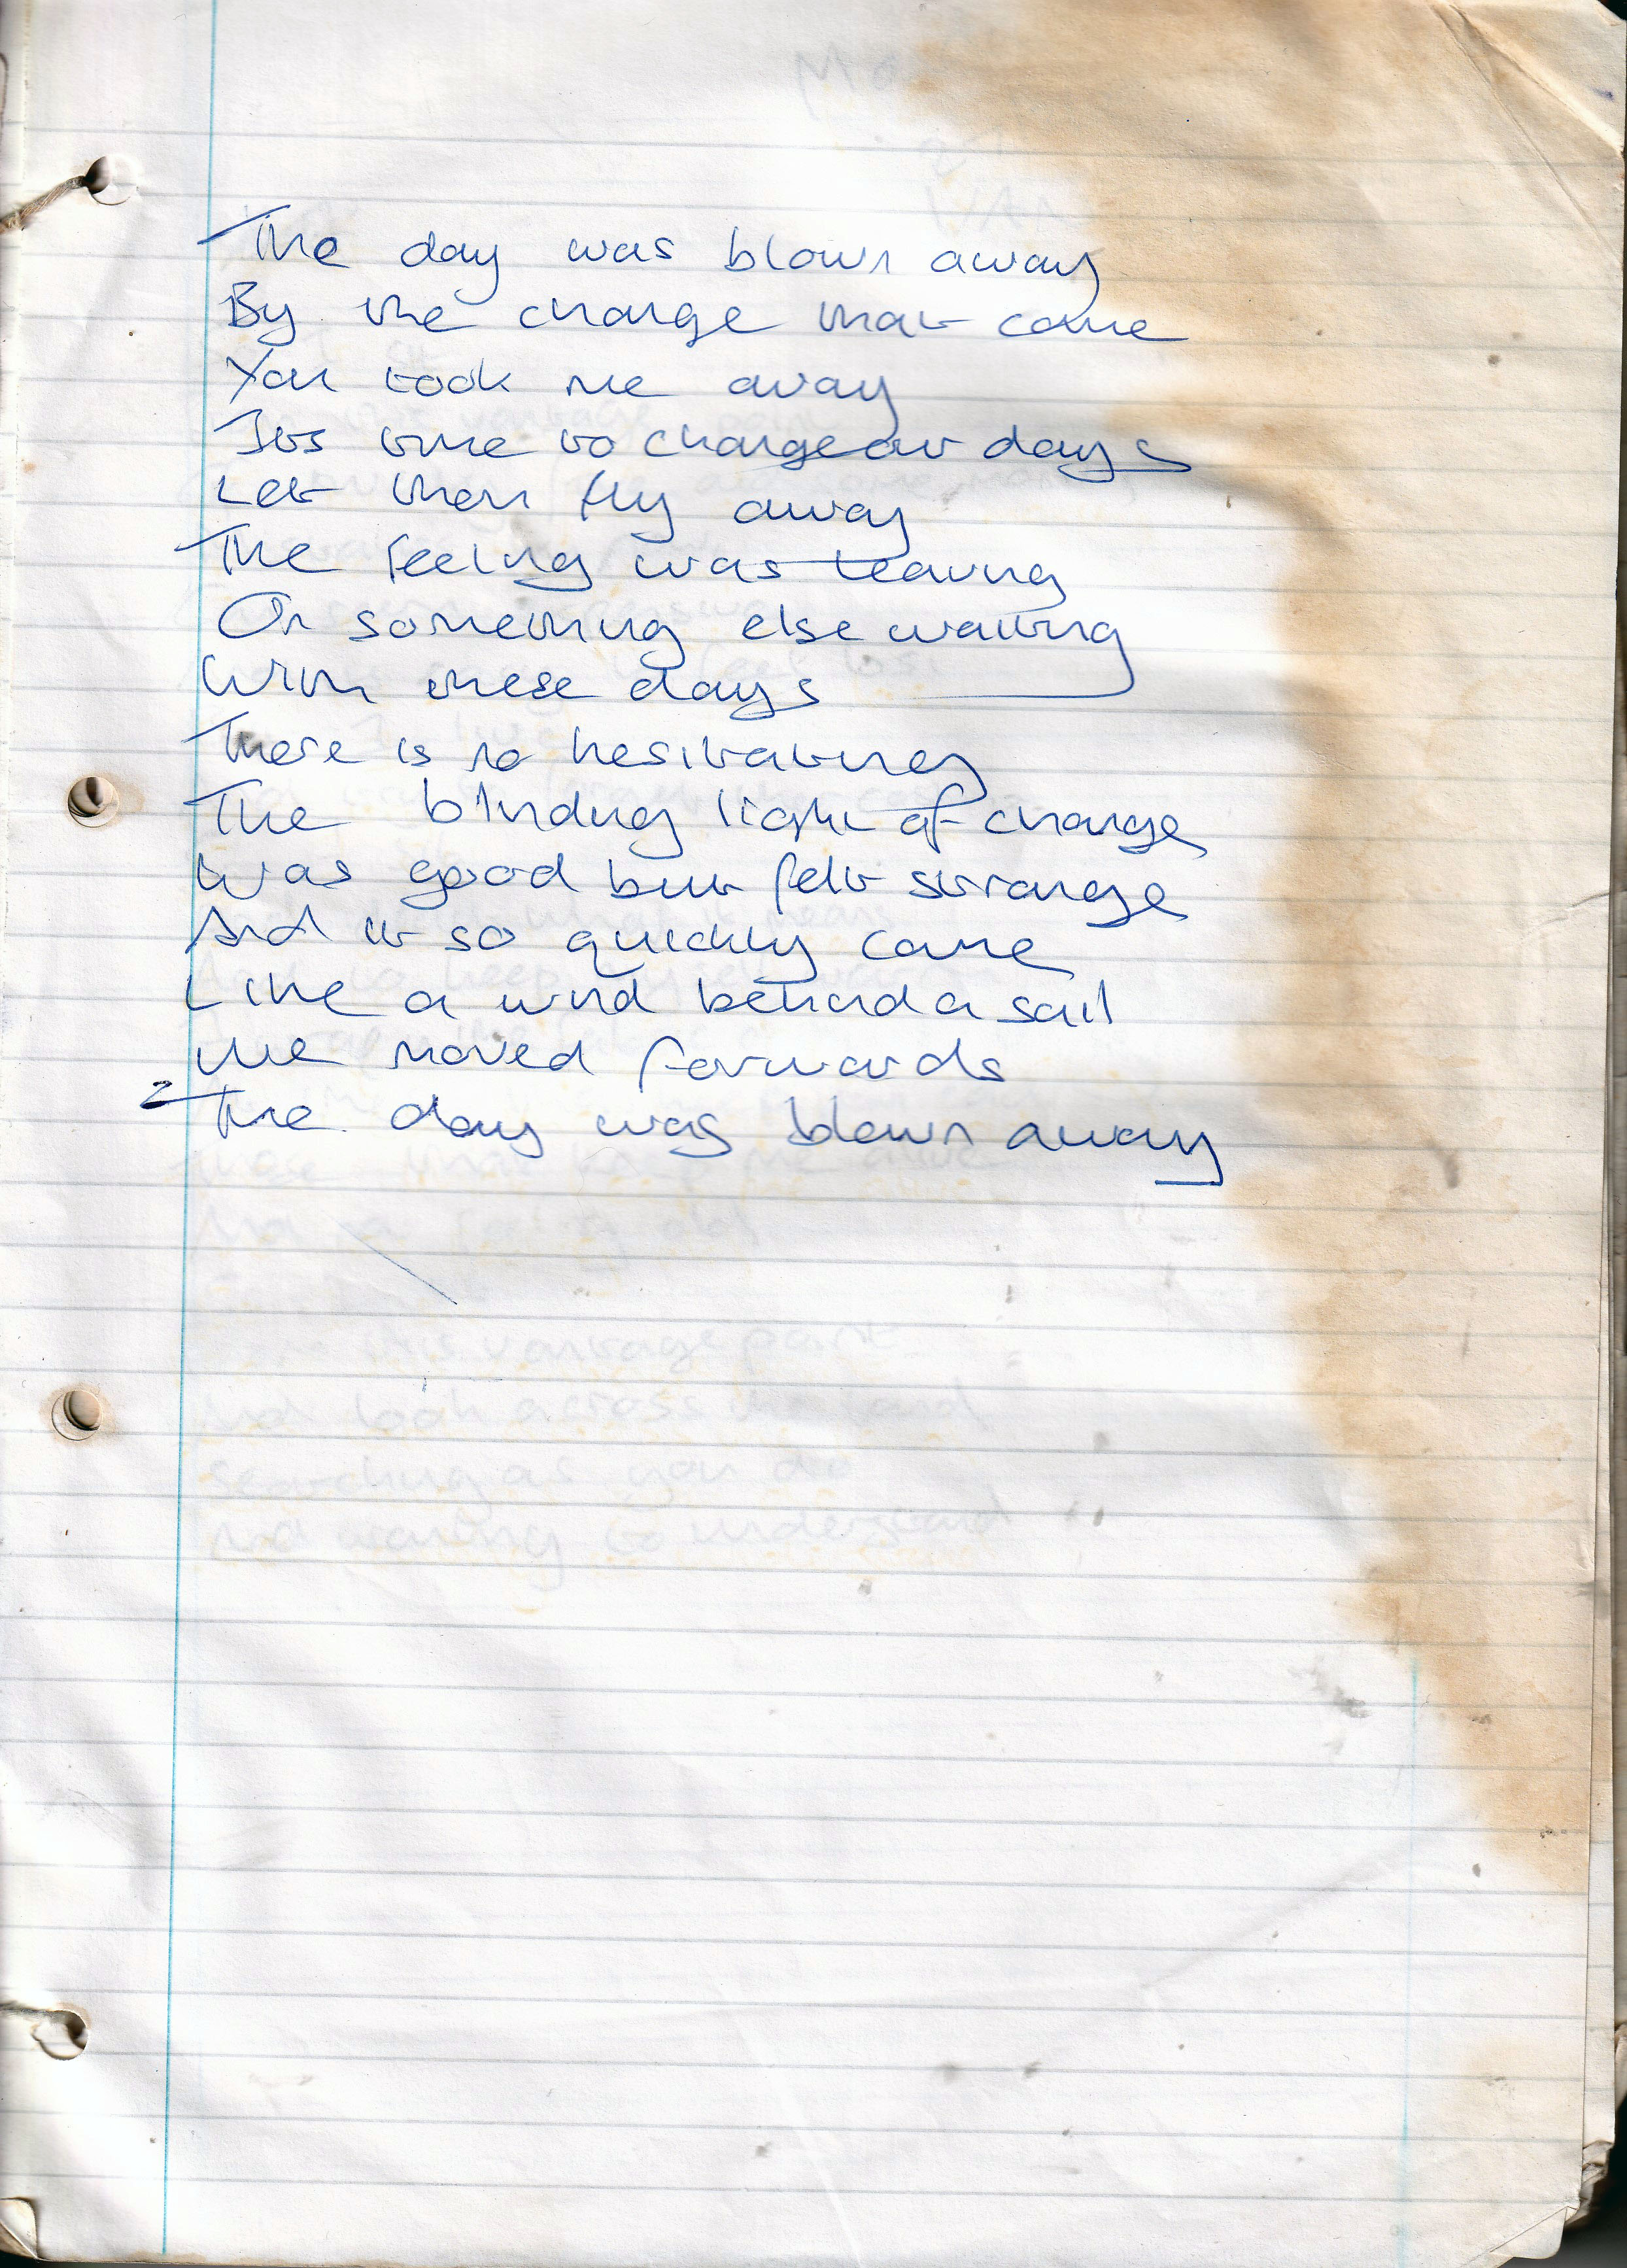 The day was blown away
By the change that came
You took me away
Its time to change our days
Let them fly away
The feeling was leaving
Or something else waiting
With these days
There is no hesitating
The blinding light of change
Was good but felt strange
And it so quickly came
Like a wind behind a sail
We moved forwards
The day was blown away
this vantage point
And look across the land
Searching as you do
And wanting to understand